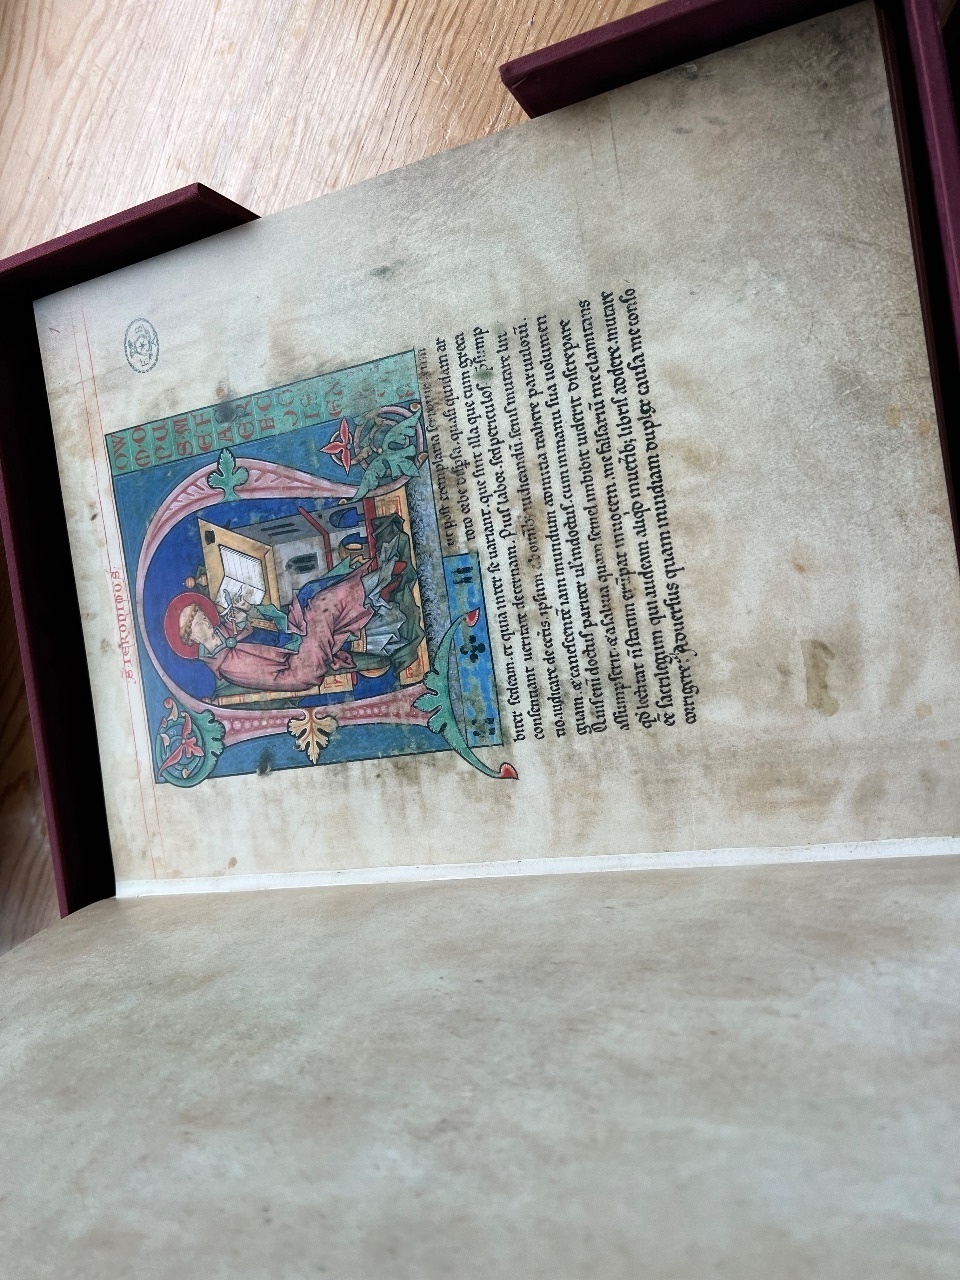 S IERONIMUS
OVV
MO
PUS
ut post exemplaria
toto orbe disp̄sa. quasi quidam ar
biter sedeam. et quia inter se uariant. que sint illa que cum greca
consentiant ueritate decernam. Pius labor. sed periculosa p̄sump
tio. iudicare de cet̄is. ipsum iudicandū. senis mutare lin
guam. & canescentē iam mundum ad initia trahere paruulorū.
Quis enī doctus pariter ul' indoctus. cum in manus suas uolumen
assumpserit. & a saliua quam semel imbibit uiderit discrepare
qd̄ lectitat. ñ statim erūpat in uocem. me falsariū me clamitans
eē sacrilegum qui audeam aliqd̄ in uetib; libris addere. mutare
corrigere: Aduersus quam inuidiam duplex causa me conso